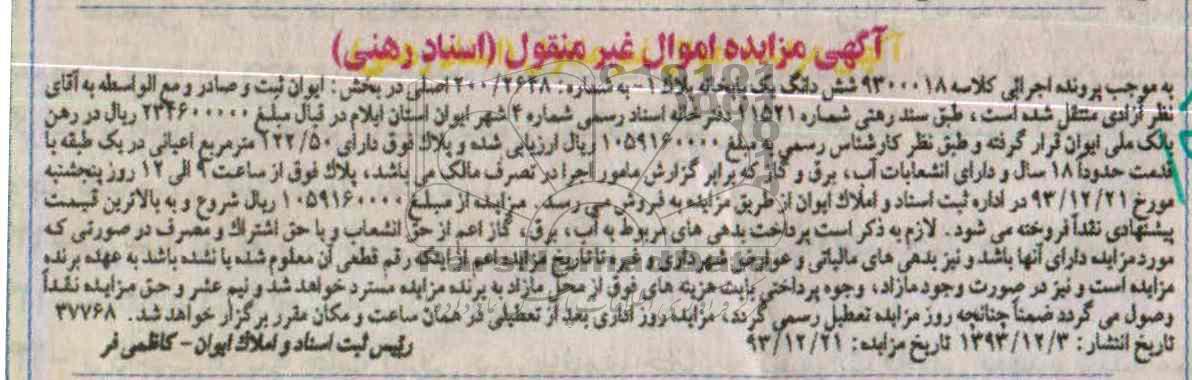 آگهی مزایده اموال غیر منقول (اسناد رهنی)
به موجب پرونده اجرائی کلاسه ۹۳۰۰۰۱۸ شش دانگ یک بابخانه پلاک ۱- به شماره: ۲۰۰/۲۶۲۸ اصلی در بخش: ایوان ثبت و صادر و مع الواسطه به آقای
نظر آزادی منتقل شده است، طبق سند رهنی شماره ۲۱۵۲۱ دفترخانه اسناد رسمی شماره ۴ شهر ایوان استان ایلام در قبال مبلغ ۲۳۴۶۰۰۰۰۰ ریال در رهن
بانک ملی ایوان قرار گرفته و طبق نظر کارشناس رسمی به مبلغ ۱۰۵۹۱۶۰۰۰۰ ریال ارزیابی شده و پلاک فوق دارای ۱۲۲/۵۰ مترمربع اعیانی در یک طبقه با
قدمت حدوداً ۱۸ سال و دارای انشعابات آب، برق و گاز که برابر گزارش مامور اجرا در تصرف مالک می باشد، پلاک فوق از ساعت ۹ الی ۱۲ روز پنجشنبه
مورخ ۹۳/۱۲/۲۱ در اداره ثبت اسناد و املاک ایوان از طریق مزایده به فروش می رسد. مزایده از مبلغ ۱۰۵۹۱۶۰۰۰۰ ریال شروع و به بالاترین قیمت
پیشنهادی نقداً فروخته می شود. لازم به ذکر است پرداخت بدهی های مربوط به آب، برق، گاز اعم از حق انشعاب و یا حق اشتراک و مصرف در صورتی که
مورد مزایده دارای آنها باشد و نیز بدهی های مالیاتی و عوارض شهرداری و غیره تا تاریخ مزایده اعم از اینکه رقم قطعی آن معلوم شده یا نشده باشد به عهده برنده
مزایده است و نیز در صورت وجود مازاد، وجوه پرداختی بابت هزینه های فوق از محل مازاد به برنده مزایده مسترد خواهد شد و نیم عشر و حق مزایده نقداً
وصول می گردد ضمناً چنانچه روز مزایده تعطیل رسمی گردد، مزایده روز اداری بعد از تعطیلی در همان ساعت و مکان مقرر برگزار خواهد شد. ۳۷۷۶۸
تاریخ انتشار: ۱۳۹۳/۱۲/۳ تاریخ مزایده: ۹۳/۱۲/۲۱
رئیس ثبت اسناد و املاک ایوان - کاظمی فر